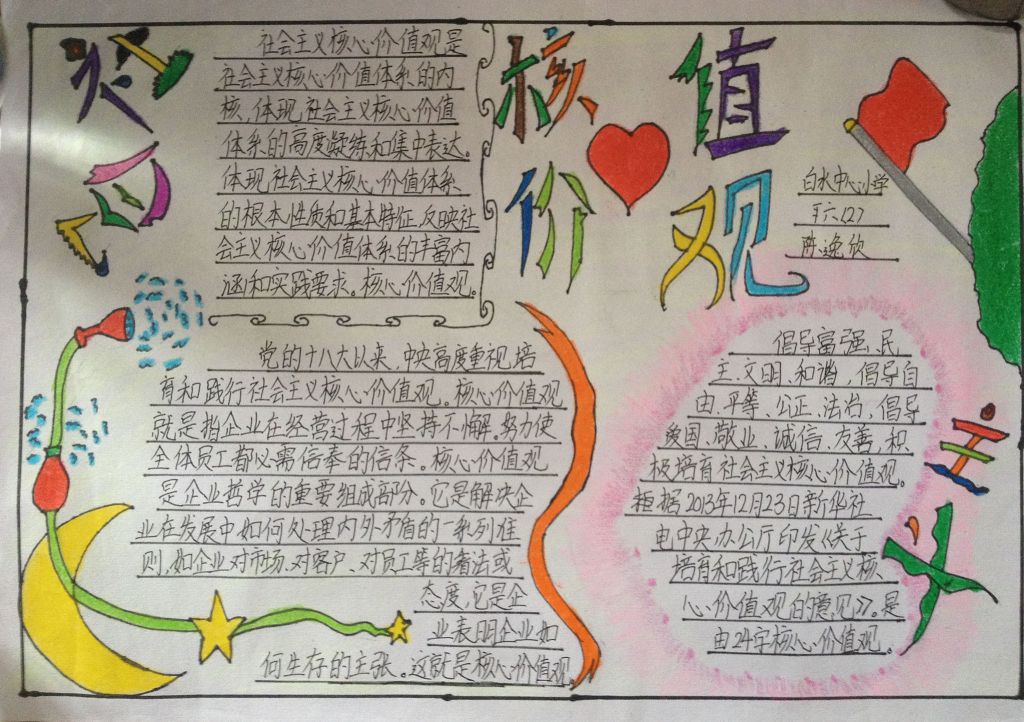 社会主义核心价值观是
社会主义核心价值体系的内
核,体现社会主义核心价值
体系的高度凝练和集中表达。
体现社会主义核心价值体系
的根本性质和基本特征,反映社
会主义核心价值体系的丰富内
涵和实践要求。核心价值观。
核 值
价 观
白水中心小学
陈逸欣
党的十八大以来,中央高度重视培
育和践行社会主义核心价值观。核心价值观
就是指企业在经营过程中坚持不懈。努力使
全体员工都必需信奉的信条。核心价值观
是企业哲学的重要组成部分。它是解决企
业在发展中如何处理内外矛盾的一系列准
则,如企业对市场、对客户、对员工等的看法或
态度,它是企
业表明企业如
何生存的主张。这就是核心价值观
倡导富强、民
主、文明、和谐,倡导自
由、平等、公正、法治、倡导
爱国、敬业、诚信、友善,积
极培育社会主义核心价值观。
根据2013年12月23日新华社
电中央办公厅印发《关于
培育和践行社会主义核
心价值观的意见》。是
由24字核心价值观。
主
义